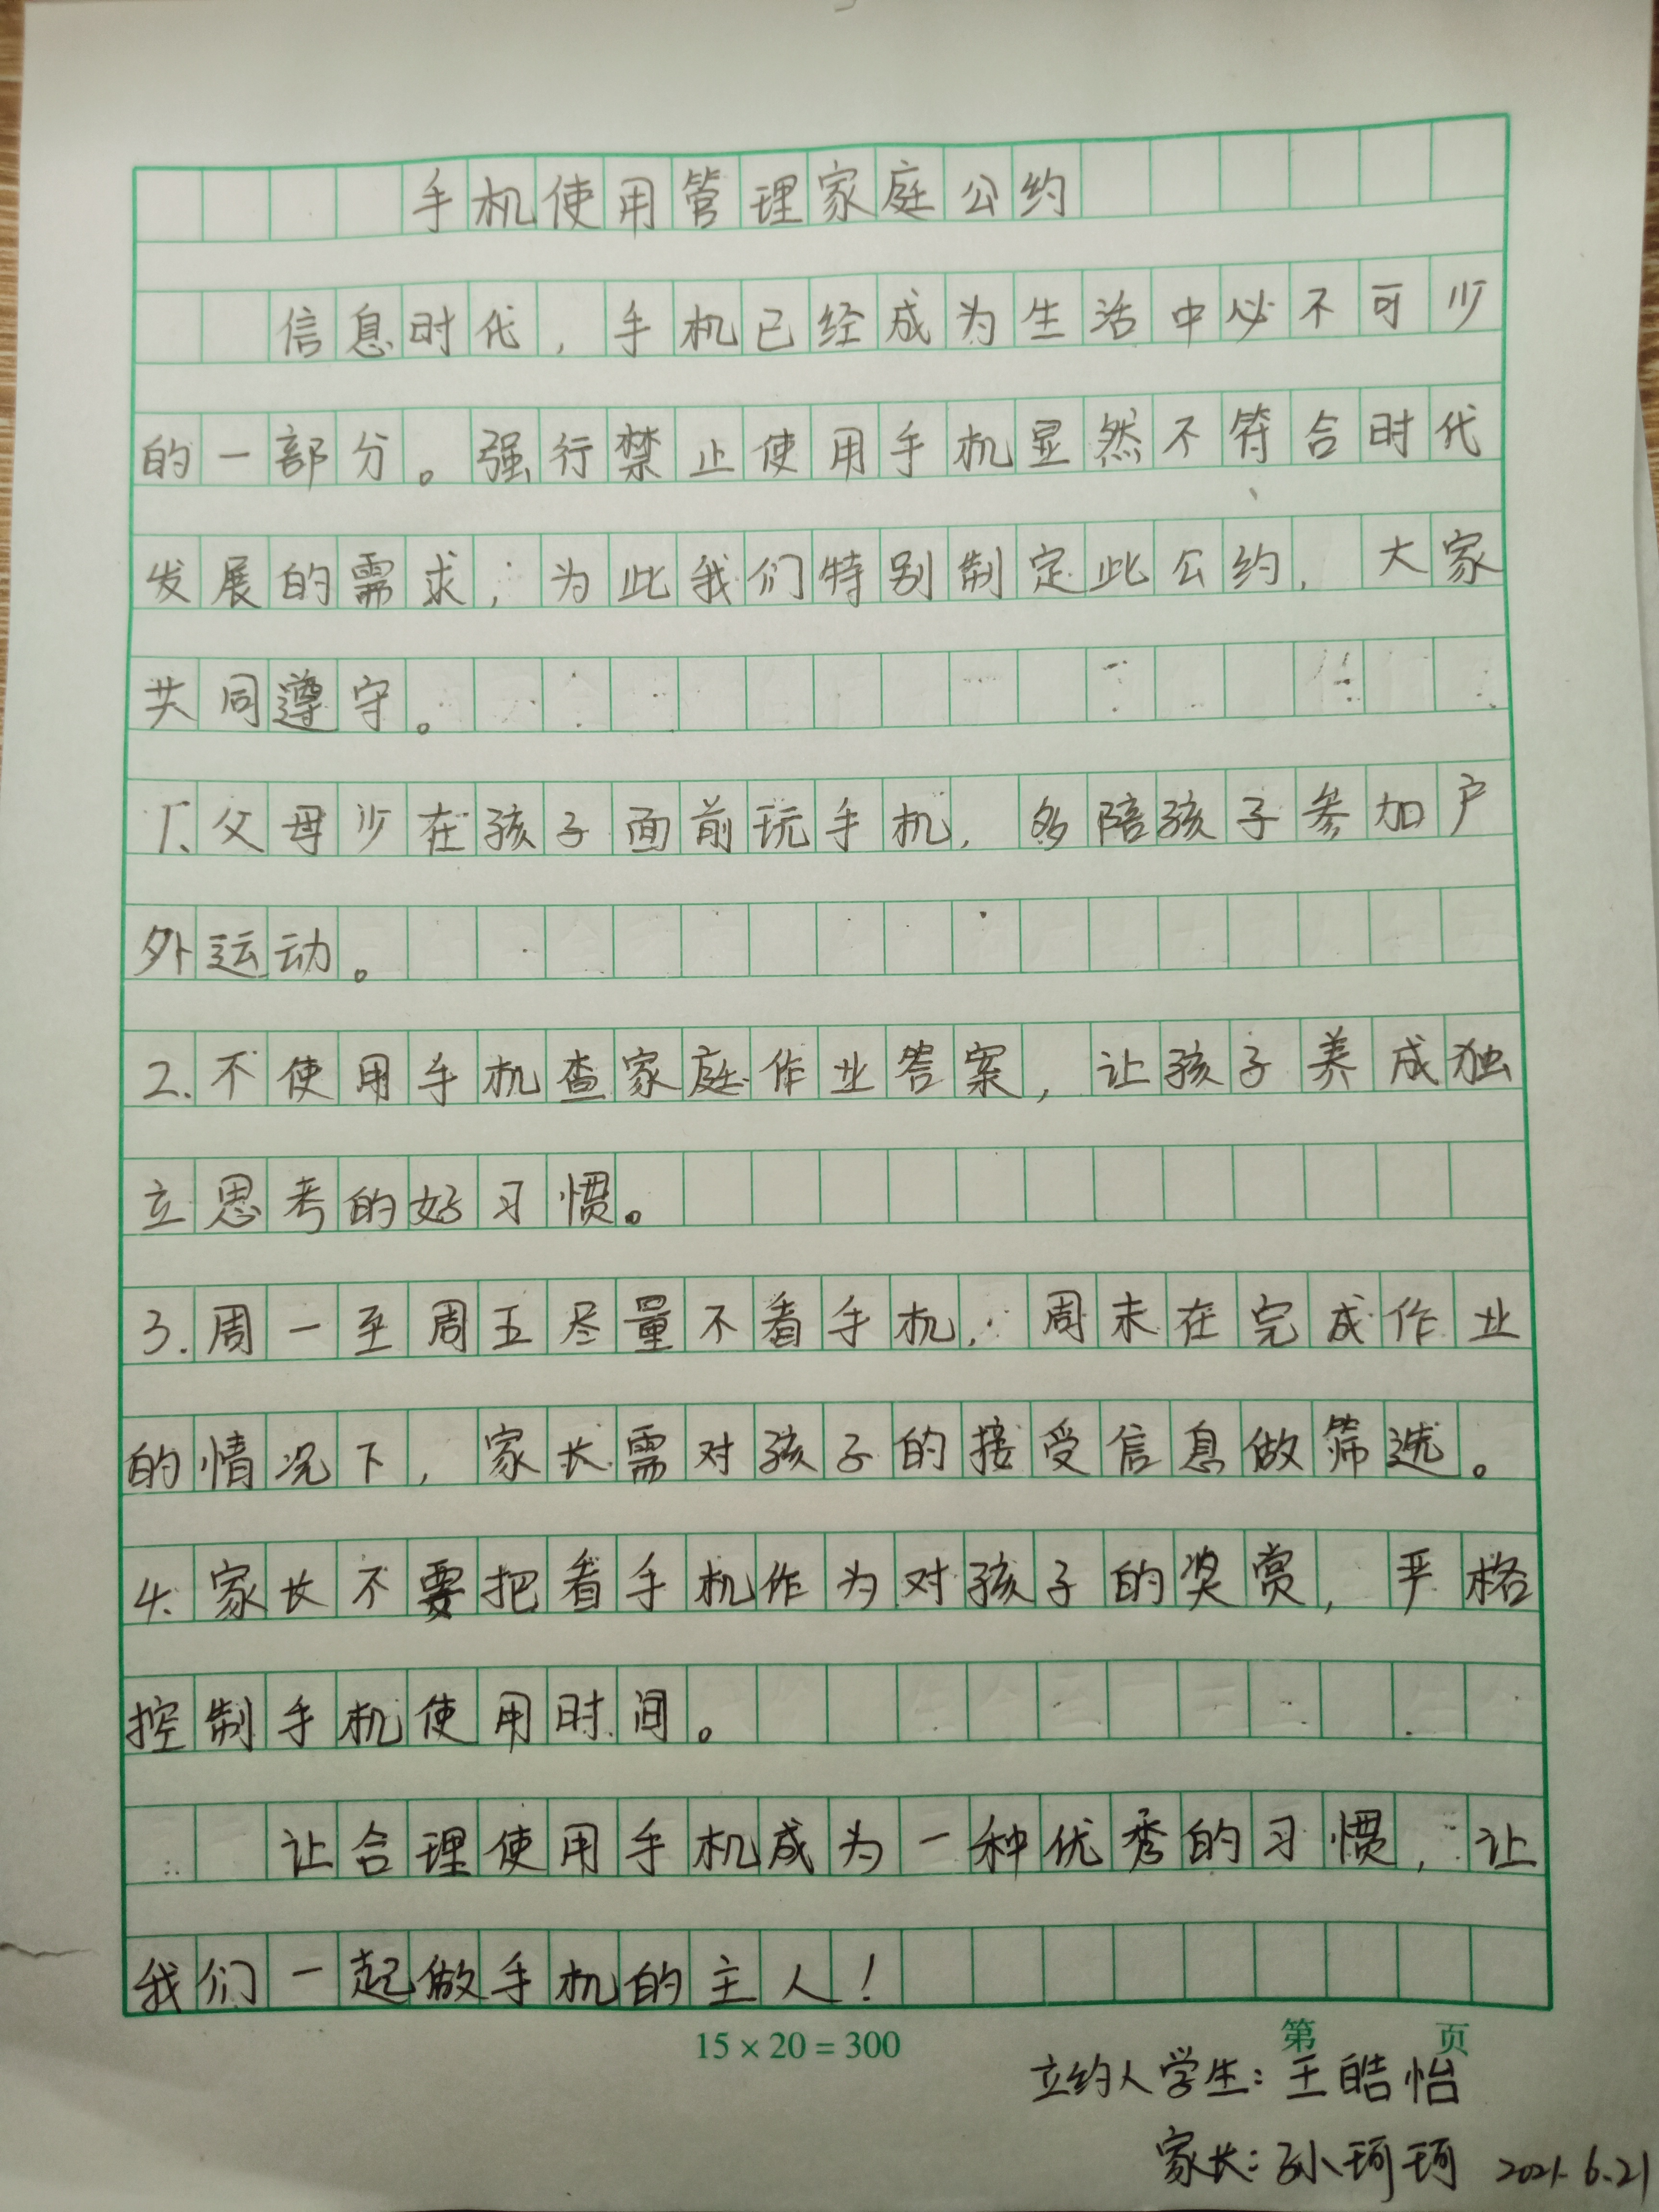 手机使用管理家庭公约
信息时代,手机已经成为生活中必不可少
的一部分。强行禁止使用手机显然不符合时代
发展的需求,为此我们特别制定此公约,大家
共同遵守。
1、父母少在孩子面前玩手机,多陪孩子参加户
外运动。
2.不使用手机查家庭作业答案,让孩子养成独
立思考的好习惯。
3.周一至周五尽量不看手机,周末在完成作业
的情况下,家长需对孩子的接受信息做筛选。
4.家长不要把看手机作为对孩子的奖赏,严格
控制手机使用时间。
让合理使用手机成为一种优秀的习惯,让
我们一起做手机的主人!
15×20=300 第 页
立约人学生:王皓怡
家长:孙珂珂 2021.6.21